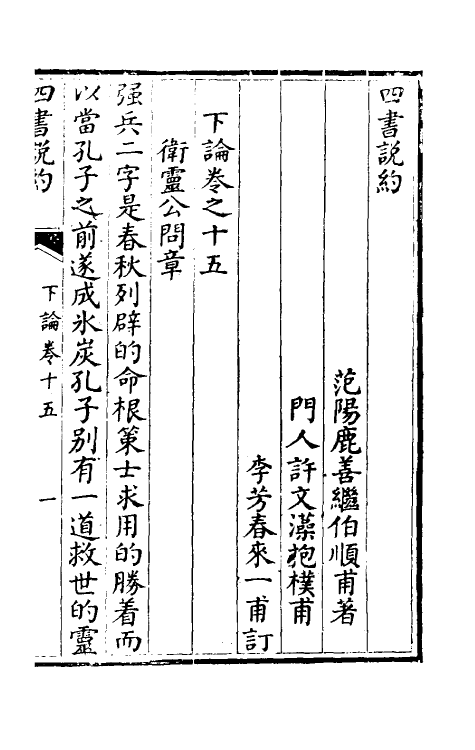 四書說約
范陽鹿善繼伯順甫著
門人許文藻抱樸甫
李芳春來一甫訂
下論卷之十五
衛靈公問章
强兵二字是春秋列辟的命根策士求用的勝着而
以當孔子之前遂成氷炭孔子别有一道救世的靈
四書說約
下論卷十五
一